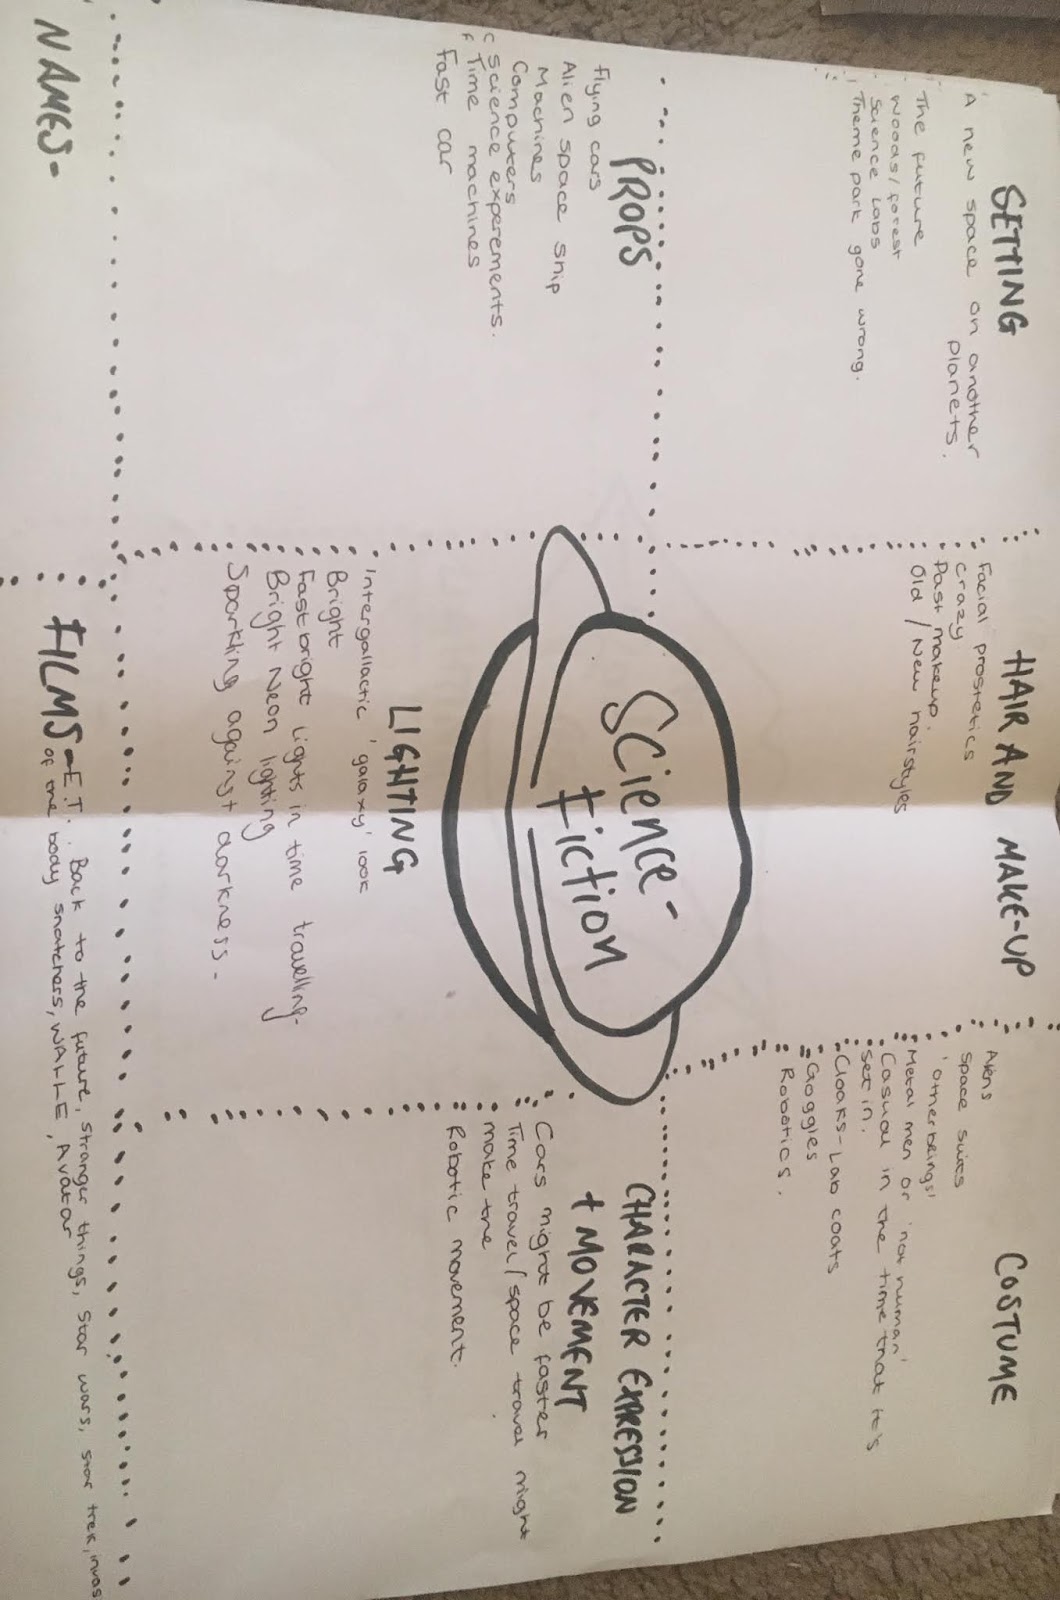 SETTING
'A new space on another
planets.
The future
Woods/forest
Science Labs
Theme park gone wrong.
HAIR AND MAKE-UP
Facial prostetics
Crazy
Past makeup.
Old/New hairstyles
COSTUME
Aliens
Space suits
'otherbeings'
Metal men or 'not human'
Casual in the time that it's
set in.
Cloaks-Lab coats
Goggles
Robotics.
PROPS
Flying cars
Alien space ship
Machines
Computers
Science experements.
Time machines
Fast car
Science-
Fiction
LIGHTING
'Intergallactic 'galaxy' look
Bright
Fast bright lights in time travelling.
Bright Neon lighting
Sparkling against darkness.
CHARACTER EXPRESSION
+ MOVEMENT
Cars might be faster
Time travel/space travel might
make the
Robotic movement.
NAMES-
FILMS-E.T. Back to the future, stranger things, Star wars, star trek, invas
of the body snatchers, WALLE, Avatar